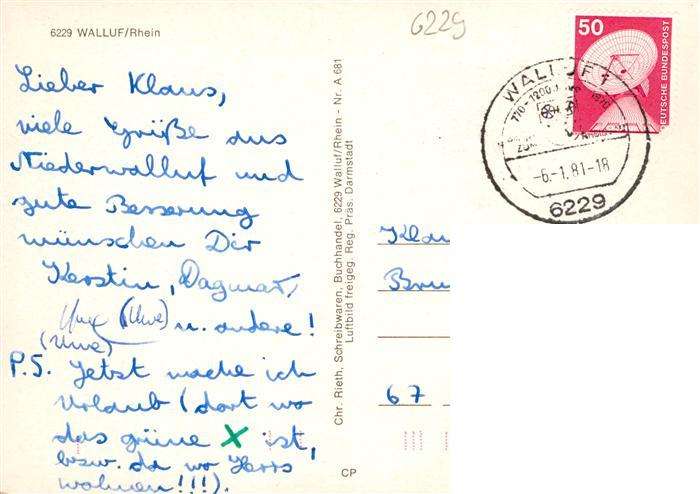 6229 WALLUF/Rhein
6229
50
DEUTSCHE BUNDESPOST
WALLUF 1
770-1200
-6.-1.81-18
6229
Lieber Klaus,
viele Grüße aus
Niederwalluf und
gute Besserung
wünschen Dir
Kerstin, Dagmar,
(Uwe) u. andere!
(Uwe)
P.S. Jetzt mache ich
Urlaub (dort wo
das grüne X ist,
bzw. da wo
wohnen!!!).
Chr. Rieth, Schreibwaren, Buchhandel, 6229 Walluf/Rhein - Nr. A 681
Luftbild freigeg. Reg. Präs. Darmstadt
CP
Klau
Bru
67